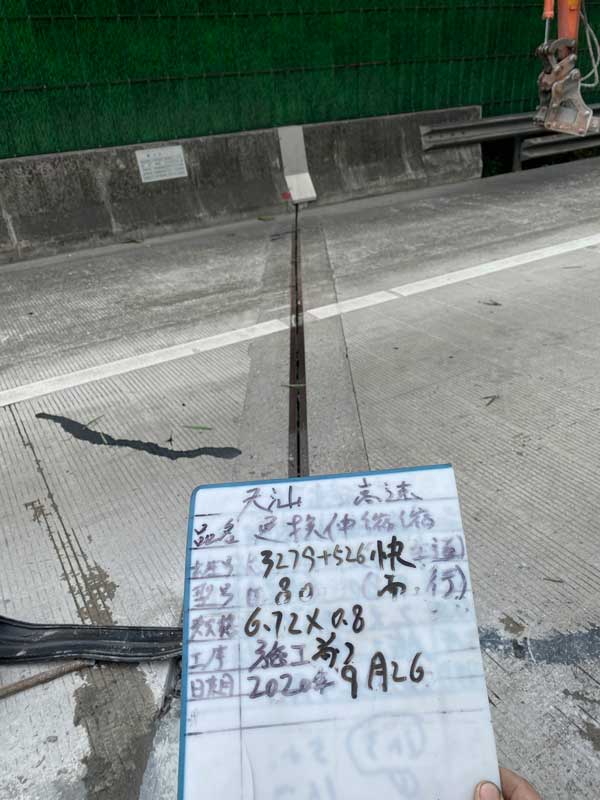 天汕 高速
品名 更换伸缩缝
桩号 K3279+526快 道)
型号 D 80 (西 行)
数量 6.72X0.8
工序 施工前
日期 2020年9月26